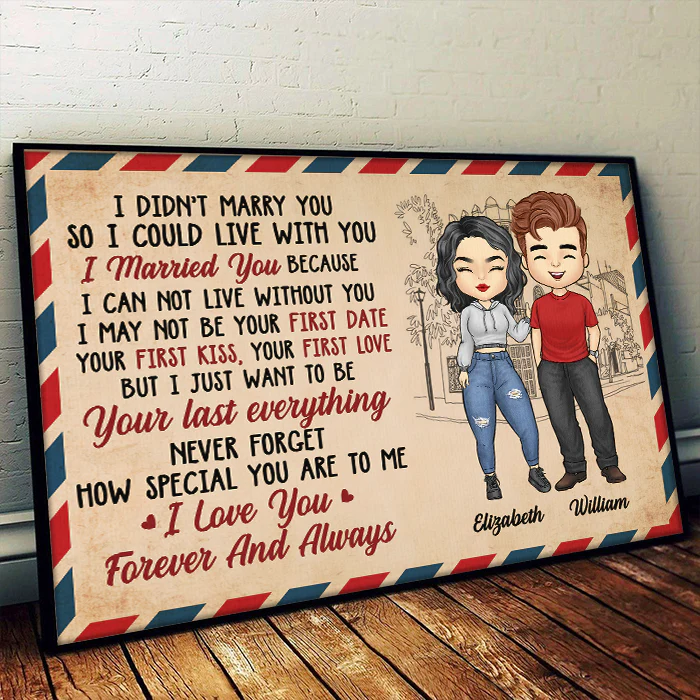 I DIDN'T MARRY YOU
SO I COULD LIVE WITH YOU
I Married You BECAUSE
I CAN NOT LIVE WITHOUT YOU
I MAY NOT BE YOUR FIRST DATE
YOUR FIRST KISS, YOUR FIRST LOVE
BUT I JUST WANT TO BE
Your last everything
NEVER FORGET
HOW SPECIAL YOU ARE TO ME
I Love You
Forever And Always
Elizabeth William